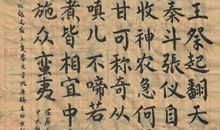 王祭起翻天
秦斗張仪自
收神农急何
甘可称奇从
嗔儿不啼若
者皆相宜中
施众蛮夷